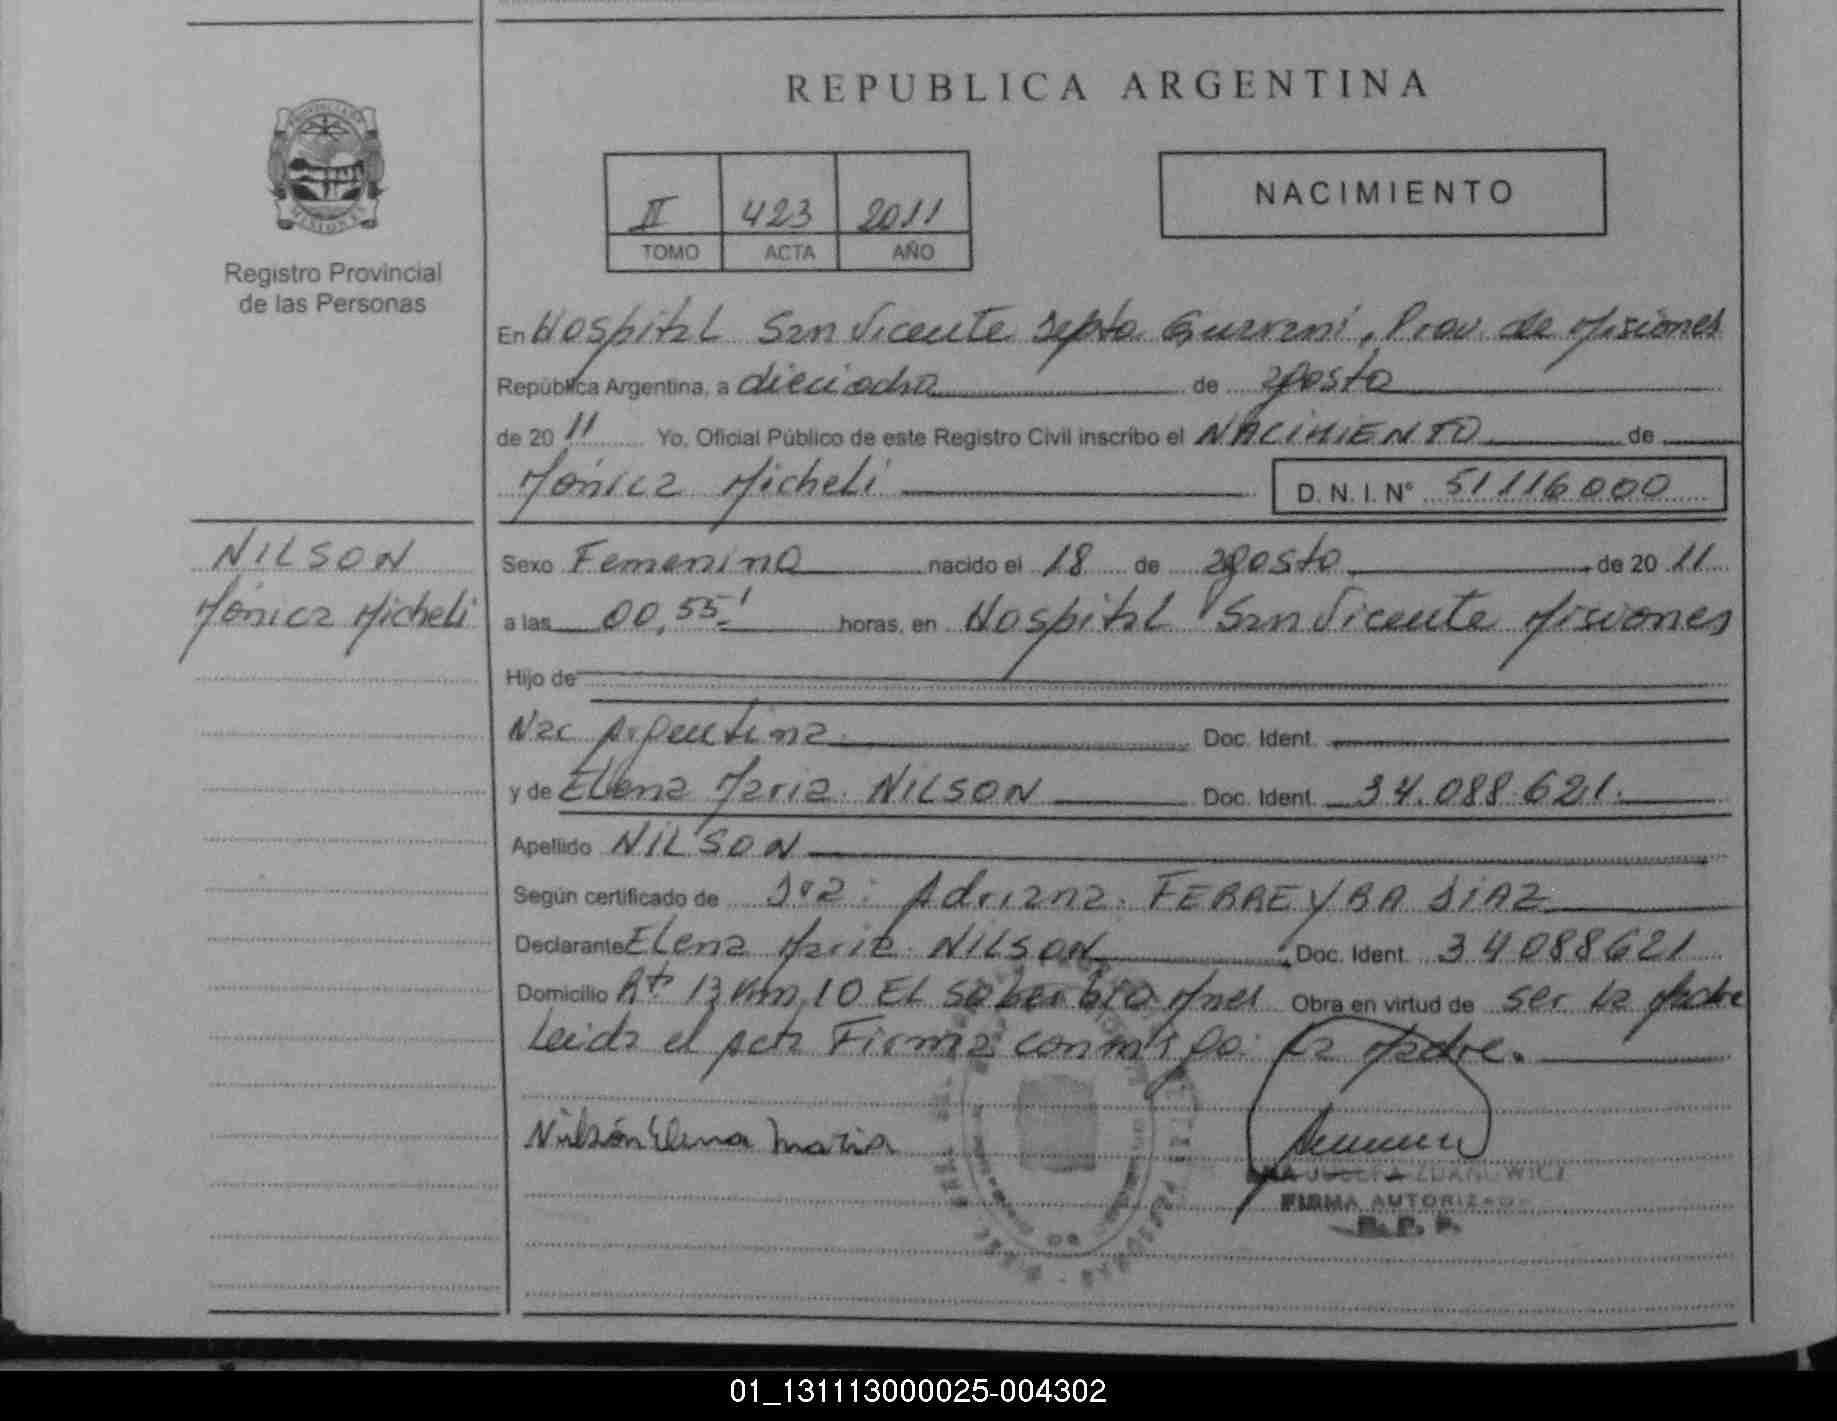 REPUBLICA ARGENTINA
II 423 2011
TOMO ACTA AÑO
NACIMIENTO
PROVINCIA DE
MISIONES
Registro Provincial
de las Personas
En Hospital San Vicente Depto Guarani, Prov. de Misiones
República Argentina, a dieciocho de agosto
de 20 11 Yo, Oficial Público de este Registro Civil inscribo el NACIMIENTO de
Mónica Micheli D. N. I. N° 51116000
NILSON
Mónica Micheli
Sexo Femenino nacido el 18 de agosto de 20 11
a las 00,55' horas, en Hospital San Vicente Misiones
Hijo de
Nac Argentina Doc. Ident.
y de Elena Maria NILSON Doc. Ident. 34.088.621.
Apellido NILSON
Según certificado de Dra: Adriana FERREYRA DIAZ
Declarante Elena Maria NILSON Doc. Ident. 34088621
Domicilio Rta 13 Km 10 EL Soberbio Mnes Obra en virtud de ser la Madre
Leida el Acta Firma conmigo: La Madre.
Nilsón Elena Maria
FIRMA AUTORIZADA
R. P. P.
01_131113000025-004302